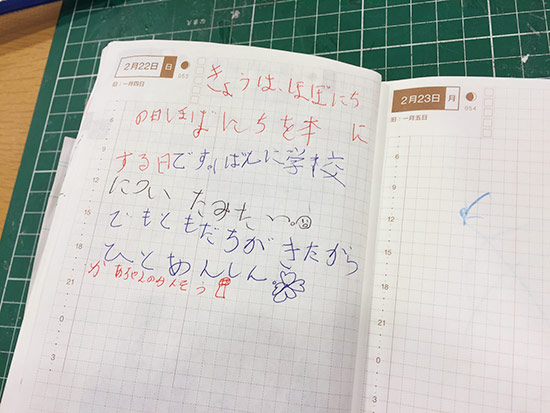 2月22日 日
053
旧:一月四日
きょうは、ほぼにち
の日ほぼにちを本に
する日です。ばんに学校
についたみたいっ。
でもともだちがきたから
ひとめんしん
6
9
12
15
18
21
0
3
2月23日 月
054
旧:一月五日
6
9
12
15
18
21
0
3